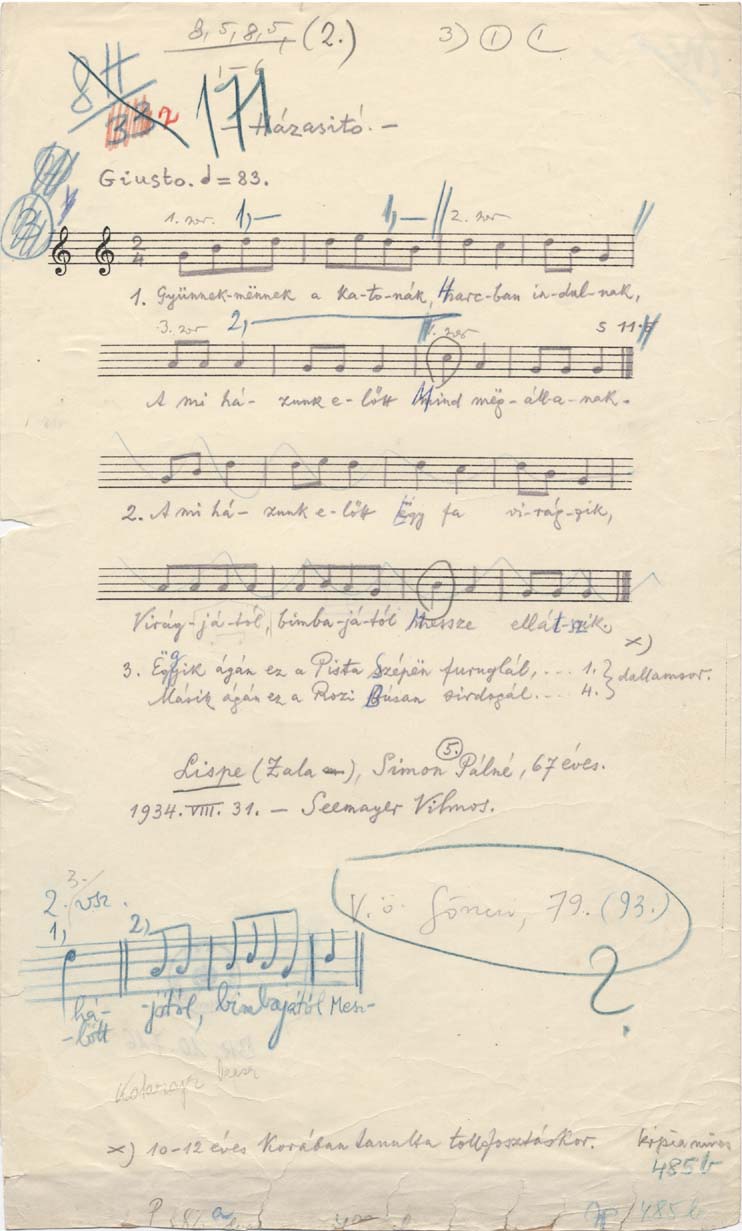 8, 5, 8, 5, (2.) 3) 1
8H
33 2 171
– Házasító. –
Giusto. = 83.
1. sor 1,– 1,– 2. sor
2
4
1. Gyünnek-mënnek a ka-to-nák, Harc-ban in-dul-nak,
3. sor 2,– sor S 11.
A mi há- zunk e-lőtt Mind mëg-áll-a-nak.
2. A mi há- zunk e-lőtt Ëgy fa vi-rág-zik,
Virág-já-tól, bimba-já-tól Messze ellát-szik.
3. Ëggyik ágán ez a Pista Szépën furuglál, ... 1. x)
Másik ágán ez a Rozi Búsan sirdogál ... 4. dallamsor.
Lispe (Zala), Simon Pálné, 67 éves.
5.
1934. VIII. 31. – Seemayer Vilmos.
3-
2. vsz.
1, 2,
há- -jától, bimbajától Mesz-
-lőtt
V. ö. Gönczi, 79. (93.)
?
x) 10-12 éves korában tanulta tollfosztáskor.
485b
485b